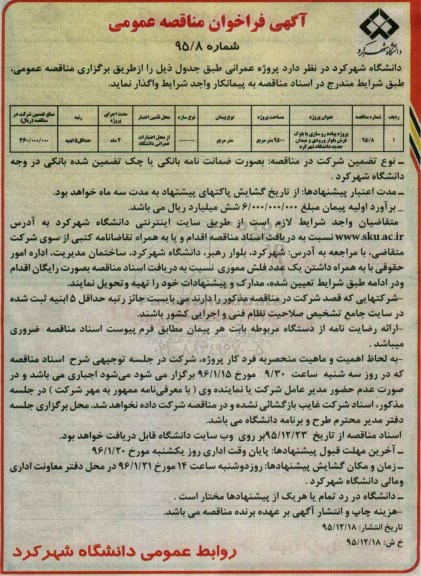 آگهی فراخوان مناقصه عمومی
شماره ۹۵/۸
دانشگاه شهرکرد
دانشگاه شهرکرد در نظر دارد پروژه عمرانی طبق جدول ذیل را ازطریق برگزاری مناقصه عمومی،
طبق شرایط مندرج در اسناد مناقصه به پیمانکار واجد شرایط واگذار نماید.
ردیف شماره مناقصه عنوان پروژه مساحت پروژه نوع پیمان نوع سازه محل تامین اعتبار مدت اجرای پروژه رشته مبلغ تضمین شرکت در مناقصه (ریال)
۱ ۹۵/۸ پروژه پیاده رو سازی با بلوک فرش بلوار ورودی و میدان جدید دانشگاه شهرکرد ۹۵۰۰ متر مربع متر مربع ------ از محل اعتبارات عمرانی دانشگاه ۲ ماه حداقل ۵ ابنیه ۳۶۰/۰۰۰/۰۰۰
ـ نوع تضمین شرکت در مناقصه: بصورت ضمانت نامه بانکی یا چک تضمین شده بانکی در وجه
دانشگاه شهرکرد .
ـ مدت اعتبار پیشنهادها: از تاریخ گشایش پاکتهای پیشنهاد به مدت سه ماه خواهد بود.
ـ برآورد اولیه پیمان مبلغ ۶/۰۰۰/۰۰۰/۰۰۰ شش میلیارد ریال می باشد.
متقاضیان واجد شرایط لازم است از طریق سایت اینترنتی دانشگاه شهرکرد به آدرس
www.sku.ac.ir نسبت به دریافت اسناد مناقصه اقدام و یا به همراه تقاضانامه کتبی از سوی شرکت
متقاضی، با مراجعه به آدرس: شهرکرد، بلوار رهبر، دانشگاه شهرکرد، ساختمان مدیریت، اداره امور
حقوقی با به همراه داشتن یک عدد فلش مموری نسبت به دریافت اسناد مناقصه بصورت رایگان اقدام
ودر ادامه طبق شرایط تعیین شده، مدارک و پیشنهادات خود را تهیه و تحویل نمایند.
-شرکتهایی که قصد شرکت در مناقصه مذکور را دارند می بایست جائز رتبه حداقل ۵ ابنیه ثبت شده
در سایت جامع تشخیص صلاحیت نظام فنی و اجرایی کشور باشند.
-ارائه رضایت نامه از دستگاه مربوطه بابت هر پیمان مطابق فرم پیوست اسناد مناقصه ضروری
میباشد .
-به لحاظ اهمیت و ماهیت منحصربه فرد کار پروژه، شرکت در جلسه توجیهی شرح اسناد مناقصه
که در روز سه شنبه ساعت ۹/۳۰ مورخ ۹۶/۱/۱۵ برگزار می شود می‌شود اجباری می باشد و در
صورت عدم حضور مدیر عامل شرکت یا نماینده وی ( با معرفی‌نامه ممهور به مهر شرکت ) در جلسه
مذکور، اسناد شرکت غایب بازگشائی نشده و در مناقصه شرکت داده نخواهد شد. محل برگزاری جلسه
دفتر مدیر محترم طرح و برنامه دانشگاه می باشد.
اسناد مناقصه از تاریخ ۹۵/۱۲/۲۳ بر روی وب سایت دانشگاه قابل دریافت خواهد بود.
ـ آخرین مهلت قبول پیشنهادها: پایان وقت اداری روز یکشنبه مورخ ۹۶/۱/۲۰
ـ زمان و مکان گشایش پیشنهادها: روزدوشنبه ساعت ۱۴ مورخ ۹۶/۱/۲۱ در محل دفتر معاونت اداری
ومالی دانشگاه شهرکرد .
ـ دانشگاه در رد تمام یا هریک از پیشنهادها مختار است .
-هزینه چاپ و انتشار آگهی بر عهده برنده مناقصه می باشد.
تاریخ انتشار: ۹۵/۱۲/۱۸
خ ش: ۹۵/۱۲/۱۸
روابط عمومی دانشگاه شهرکرد